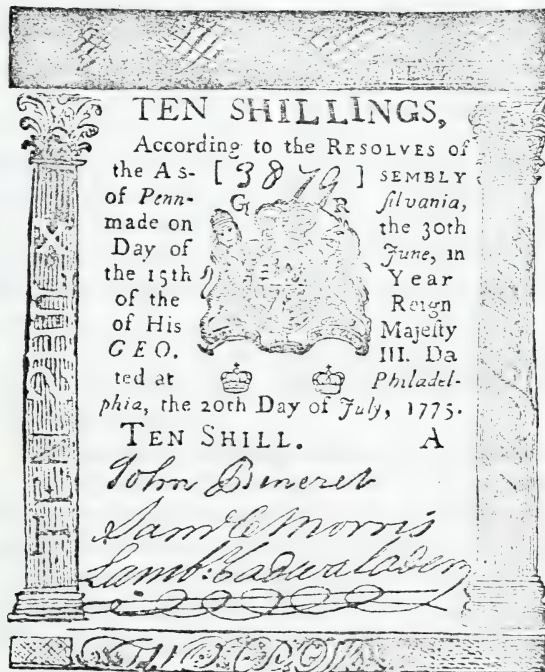 TEN SHILLINGS,
According to the RESOLVES of
the As- [ 3879 ] SEMBLY
of Penn- G R ſilvania,
made on the 30th
Day of June, in
the 15th Year
of the Reign
of His Majeſty
GEO. III. Da
ted at Philadel-
phia, the 20th Day of July, 1775.
TEN SHILL. A
John
Saml C Morris
Lamb. Cadwalader